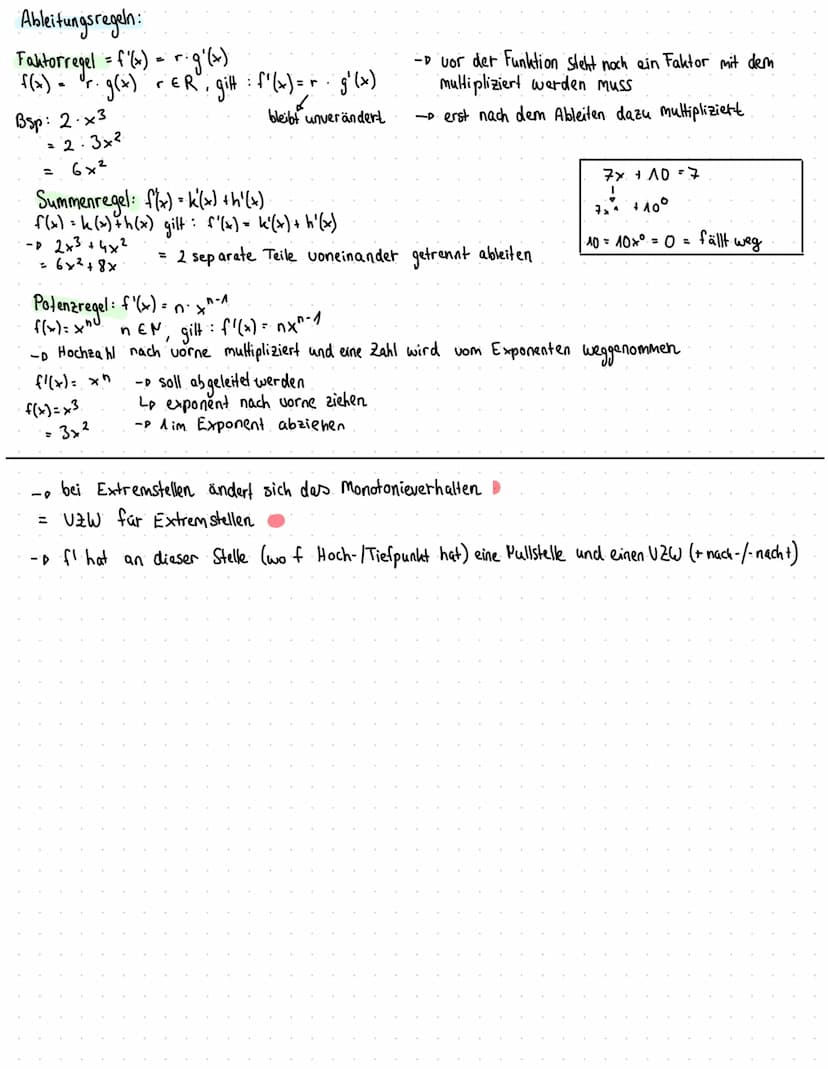 Ableitungsregeln:
Faktorregel = f'(x) = r · g'(x)
f(x) = r · g(x) r ∈ R, gilt : f'(x) = r · g'(x)
bleibt unverändert
-> vor der Funktion steht noch ein Faktor mit dem
multipliziert werden muss
-> erst nach dem Ableiten dazu multipliziert
Bsp: 2 · x³
= 2 · 3x²
= 6x²
7x + 10 = 7
7x¹ + 10⁰
10 = 10x⁰ = 0 = fällt weg
Summenregel: f'(x) = k'(x) + h'(x)
f(x) = k(x) + h(x) gilt : f'(x) = k'(x) + h'(x)
-> 2x³ + 4x²
= 6x² + 8x = 2 separate Teile voneinander getrennt ableiten
Potenzregel: f'(x) = n · xⁿ⁻¹
f(x) = xⁿ n ∈ N, gilt : f'(x) = nxⁿ⁻¹
-> Hochzahl nach vorne multipliziert und eine Zahl wird vom Exponenten weggenommen
f'(x) = xⁿ -> soll abgeleitet werden
f(x) = x³ ↳ exponent nach vorne ziehen
= 3x² -> 1 im Exponent abziehen
-> bei Extremstellen ändert sich das Monotonieverhalten
= VZW für Extremstellen
-> f' hat an dieser Stelle (wo f Hoch-/Tiefpunkt hat) eine Nullstelle und einen VZW (+ nach -/- nach +)